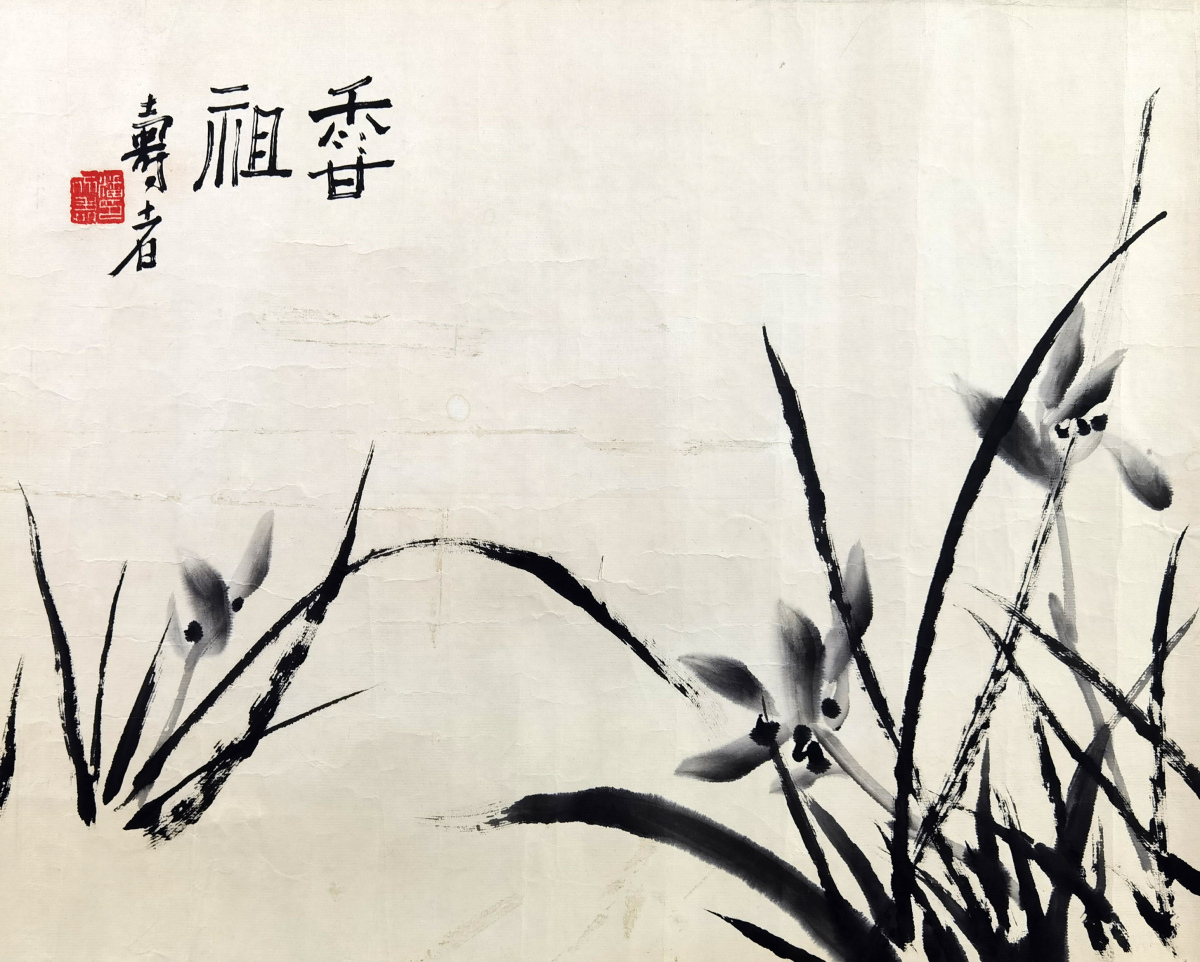 香祖
壽者